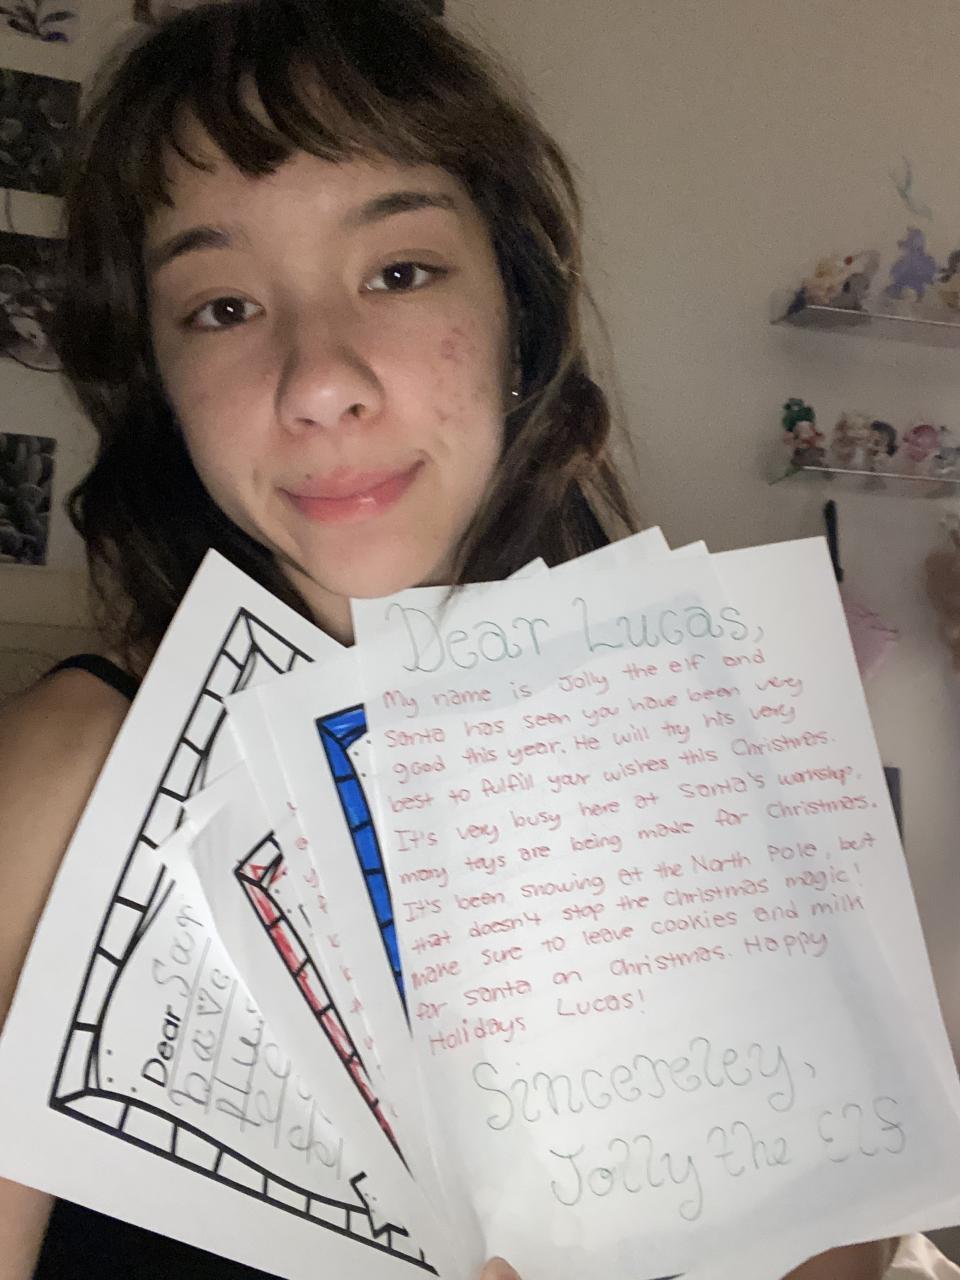 Dear Lucas,
My name is Jolly the elf and
Santa has seen you have been very
good this year. He will try his very
best to fulfill your wishes this Christmas.
It's very busy here at Santa's workshp.
many toys are being made for Christmas.
It's been snowing at the North Pole, but
that doesn't stop the Christmas magic!
make sure to leave cookies and milk
for santa on Christmas. Happy
Holidays Lucas!
Sincereley,
Jolly the Elf
Dear San